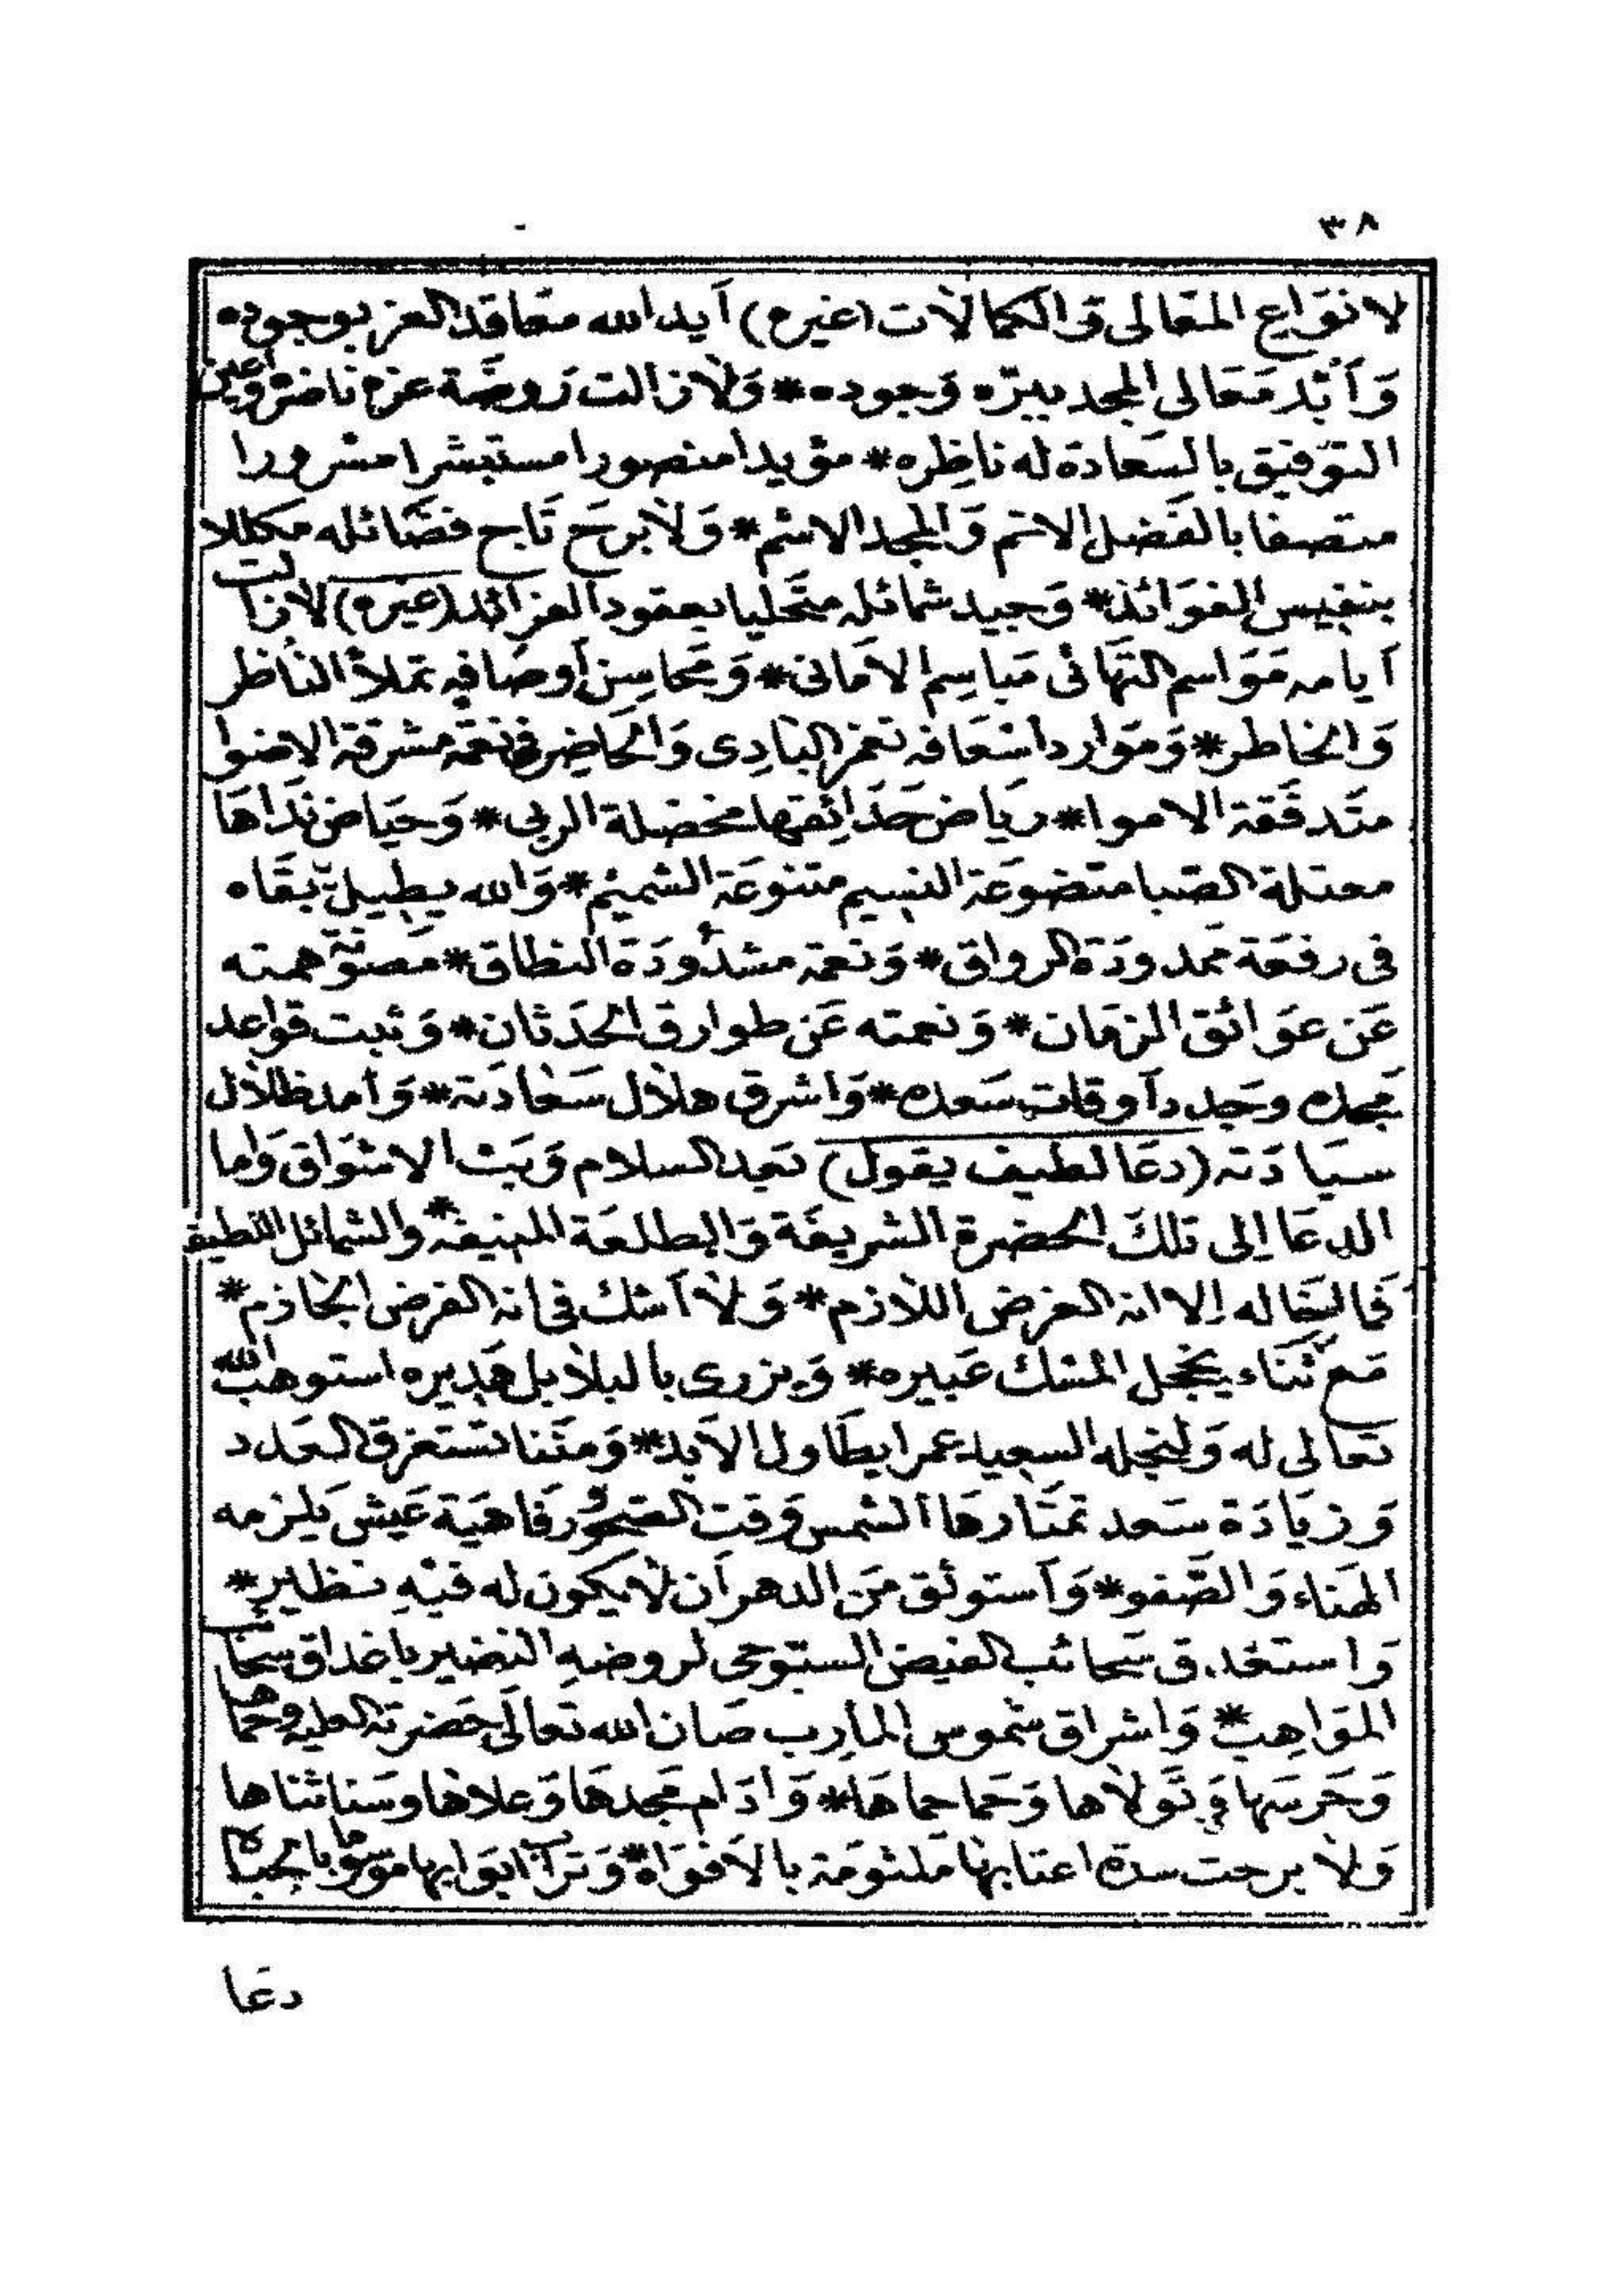 ٣٨
لانواع المعالى والكمالات (غيره) أيد الله معاقد العز بوجوده
وأبد معالى المجد ببره وجوده * ولا زالت روضة عزه ناضره وأعين
التوفيق بالسعادة له ناظره * مؤيدا منصورا مستبشرا مسرورا
متصفا بالفضل الاتم والمجد الاشم * ولا برح تاج فضائله مكللا
بنفيس الفوائد * وجيد شمائله متحليا بعقود الفرائد (غيره) لا زالت
أيامه مواسم التهانى مباسم الامانى * ومحاسن أوصافه تملأ الناظر
والخاطر * وموارد اسعافه تغمر البادى والحاضر فى نعمة مشرقة الاضوا
متدفقة الاموا * رياض حدائقها مخضلة الربى * وحياض نداها
معتلة الصبا متضوعة النسيم متنوعة الشميم * والله يطيل بقاه
فى رفعة ممدودة الرواق * ونعمة مشدودة النطاق * مصونة همته
عن عوائق الزمان * ونعمته عن طوارق الحدثان * وثبت قواعد
مجده وجدد أوقات سعده * واشرق هلال سعادته * وأمد ظلال
سيادته (دعا لطيف يقول) بعد السلام وبث الاشواق وأما
الدعا إلى تلك الحضرة الشريفة والطلعة المنيفة * والشمائل اللطيفة
فما إخاله إلا انه الغرض اللازم * ولا أشك فى انه الفرض الجازم *
مع ثناء يخجل المسك عبيره * ويزرى بالبلابل هديره استوهب الله
تعالى له ولنجله السعيد عمرا يطاول الابد * ومننا تستغرق العدد
وزيادة سعد تمتارها الشمس وقت الصحو ورفاهية عيش يلزمه
الهناء والصفو * وأستوثق من الدهر أن لا يكون له فيه نظير *
واستغدق سحائب الفيض السبوحى لروضه النضير باغداق سحائب
المواهب * واشراق شموس المآرب صان الله تعالى حضرته العليه وحماها
وحرسها وتولاها وحما حماها * وادام مجدها وعلاها وسنا ثناها
ولا برحت سدة اعتابها ملثومة بالافواه * وتراب ابوابها موسوما بالجباه
دعا